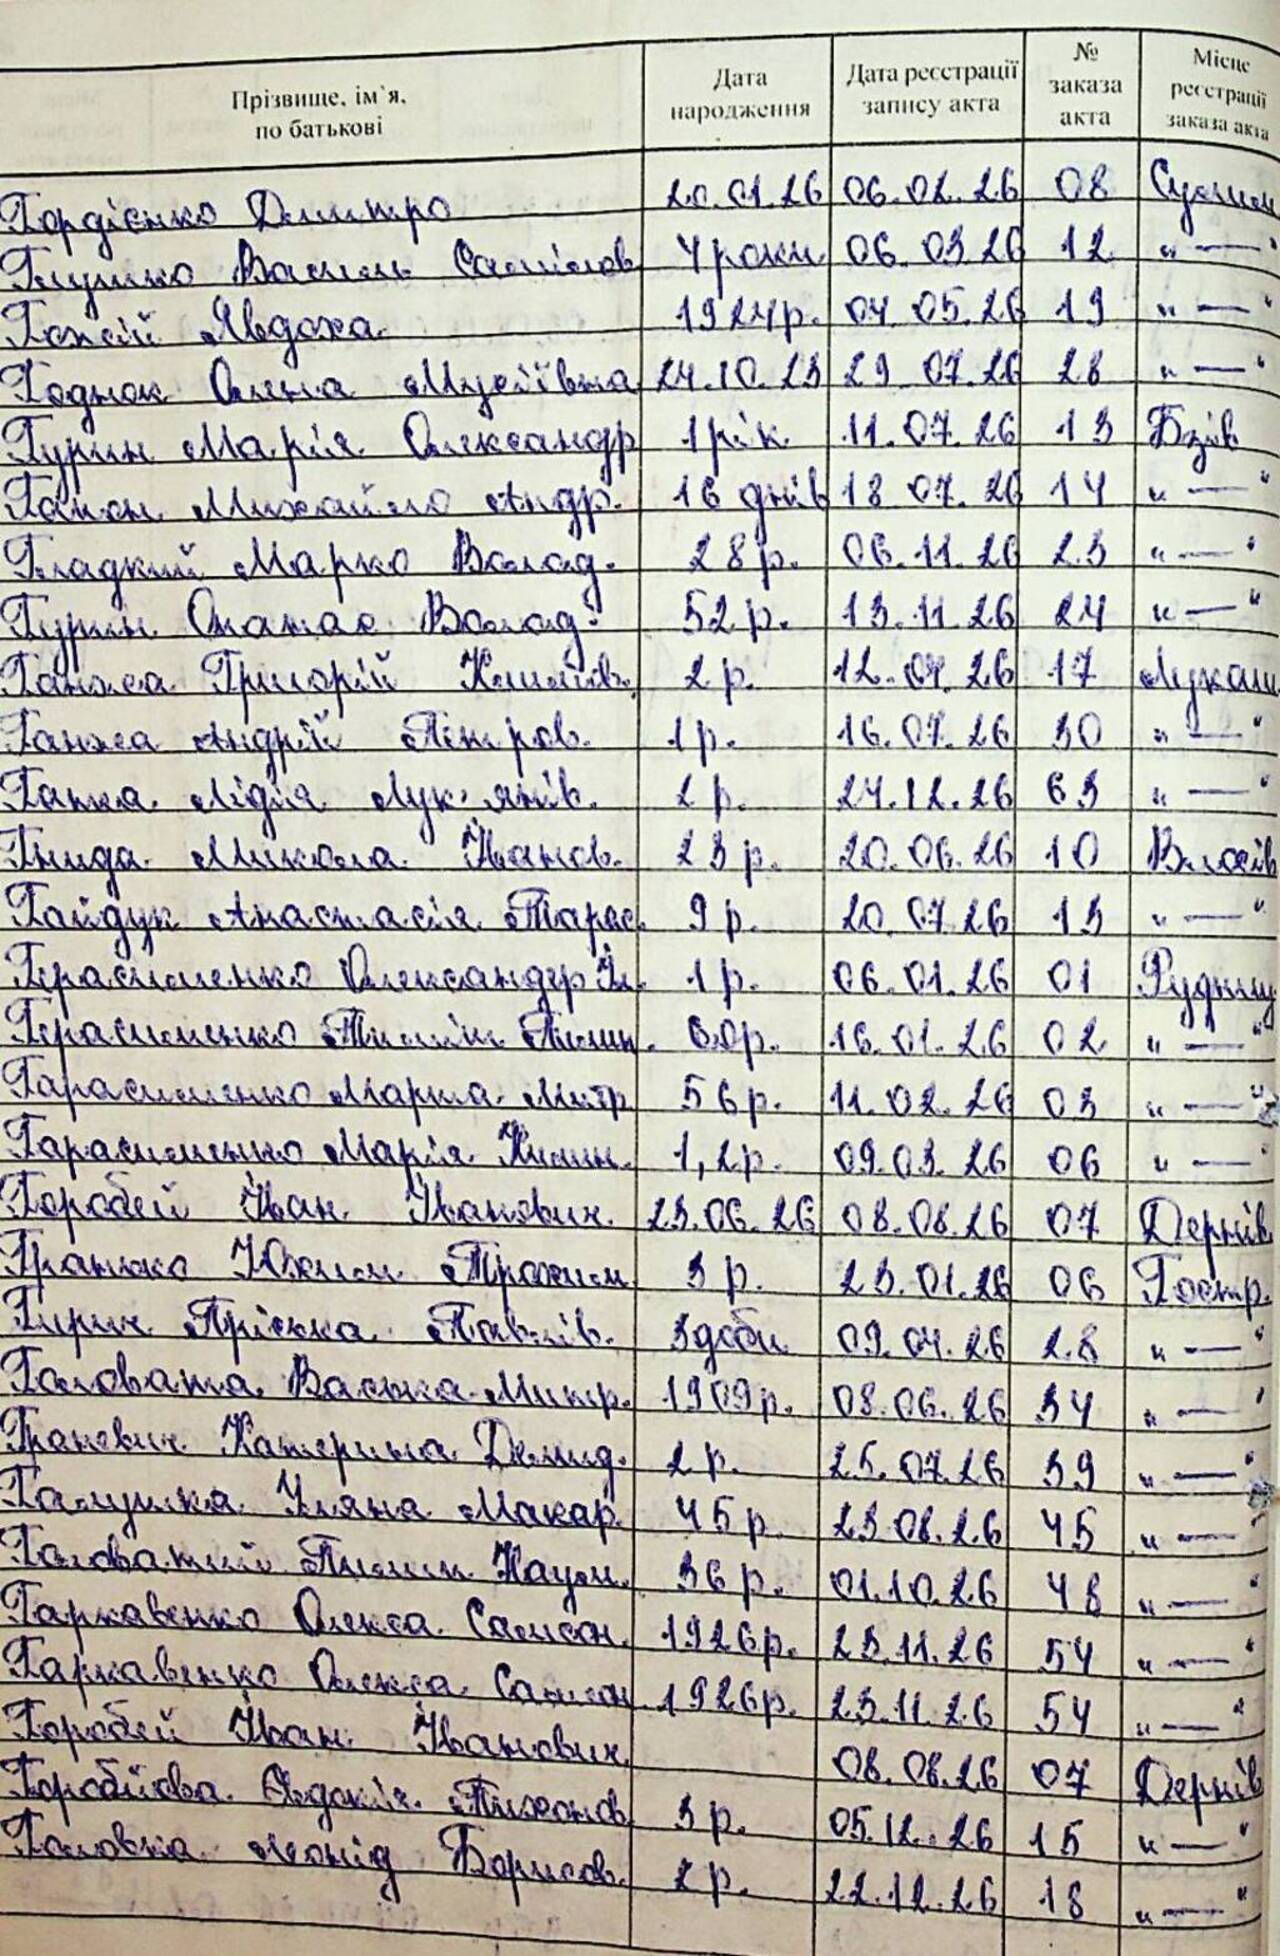 Прізвище, ім`я, по батькові | Дата народження | Дата реєстрації запису акта | № заказа акта | Місце реєстрації заказа акта
Гордієнко Дмитро 20.01.26 06.02.26 08
Глушко Василь Самійлов 4 роки 06.03.26 12 "—"
Явдоха 1924р. 04.05.26 19 "—"
Годнюк Олена Мусіївна 24.10.23 29.07.26 28 "—"
Гурин Марія Олександр 1 рік 11.07.26 13 Бзів
Гапон Михайло Андр. 16 днів 18.07.26 14 "—"
Гладкий Марко Волод. 28р. 06.11.26 23 "—"
Гурин Опанас Волод. 52р. 13.11.26 24 "—"
Ганжа Григорій Климів. 2р. 12.04.26 17 Лукаш
Ганжа Андрій Петров. 1р. 16.07.26 30 "—"
Ганжа Лідія Лук'янів. 2р. 24.12.26 63 "—"
Гнида Микола Іванов. 23р. 20.06.26 10
Гайдук Анастасія Тарас. 9р. 20.07.26 13 "—"
Герасименко Олександер Іл. 1р. 06.01.26 01 Рудниц
Герасименко Пилип 60р. 16.01.26 02 "—"
Гарасименко Марина Митр. 56р. 11.02.26 03 "—"
Гарасименко Марія 1,2р. 09.03.26 06 "—"
Горобей Іван Іванович 23.06.26 08.08.26 07 Дернів
Гранько Юхим Трохим. 3р. 23.01.26 06 Гостр.
Гирич Пріська Павлів. 3 доби 09.04.26 28 "—"
Головата Васька Митр. 1909р. 08.06.26 34 "—"
Гранович Катерина Демид. 2р. 25.07.26 39 "—"
Галушка Уляна Макар. 45р. 23.08.26 45 "—"
Головатий Пилип Наум. 36р. 01.10.26 48 "—"
Гаркавенко Олекса Самсон. 1926р. 23.11.26 54 "—"
Гаркавенко Олекса Самсон 1926р. 23.11.26 54 "—"
Горобей Іван Іванович 08.08.26 07 Дернів
Явдокія Тихонов. 3р. 05.12.26 15 "—"
Головка Леонід Борисов. 2р. 22.12.26 18 "—"